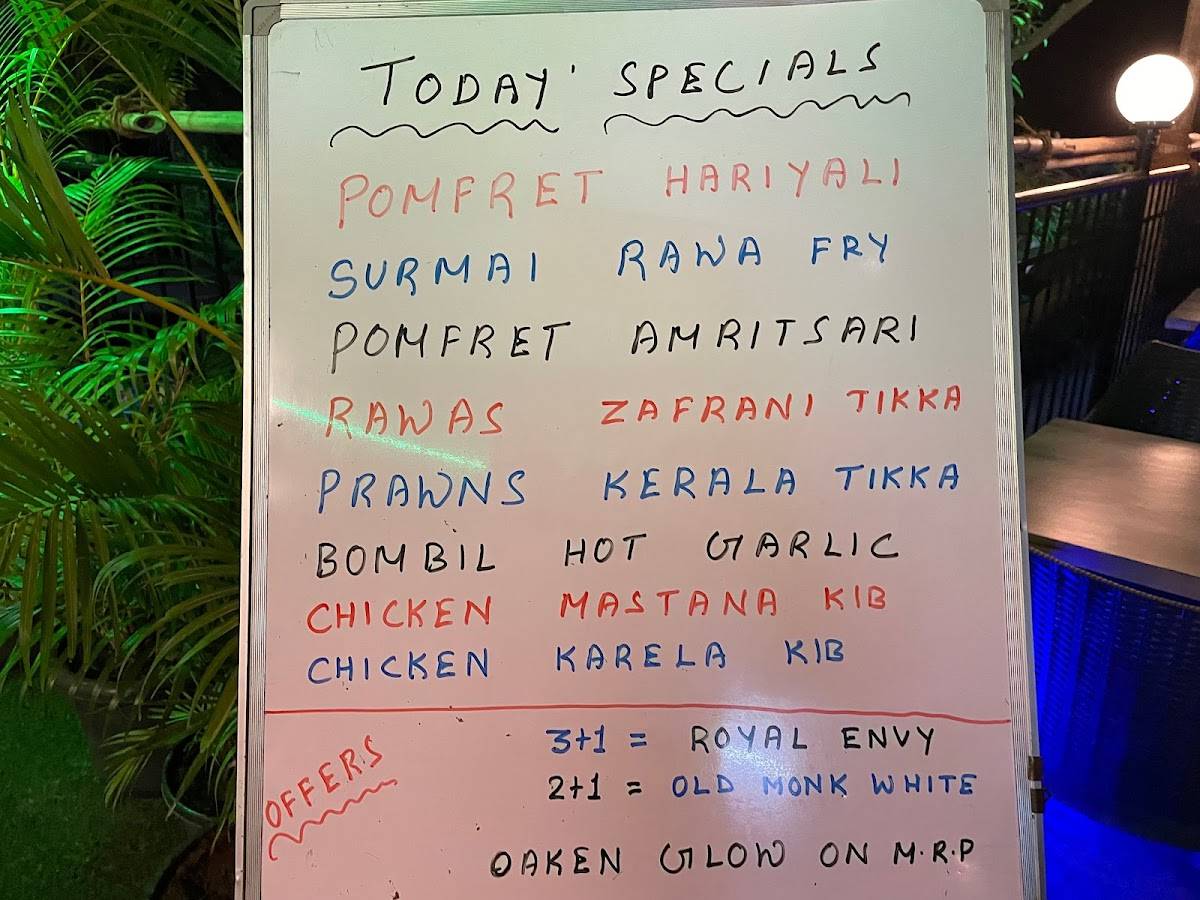 TODAY' SPECIALS
POMFRET HARIYALI
SURMAI RAWA FRY
POMFRET AMRITSARI
RAWAS ZAFRANI TIKKA
PRAWNS KERALA TIKKA
BOMBIL HOT GARLIC
CHICKEN MASTANA KIB
CHICKEN KARELA KIB
OFFERS
3+1 = ROYAL ENVY
2+1 = OLD MONK WHITE
OAKEN GLOW ON M.R.P